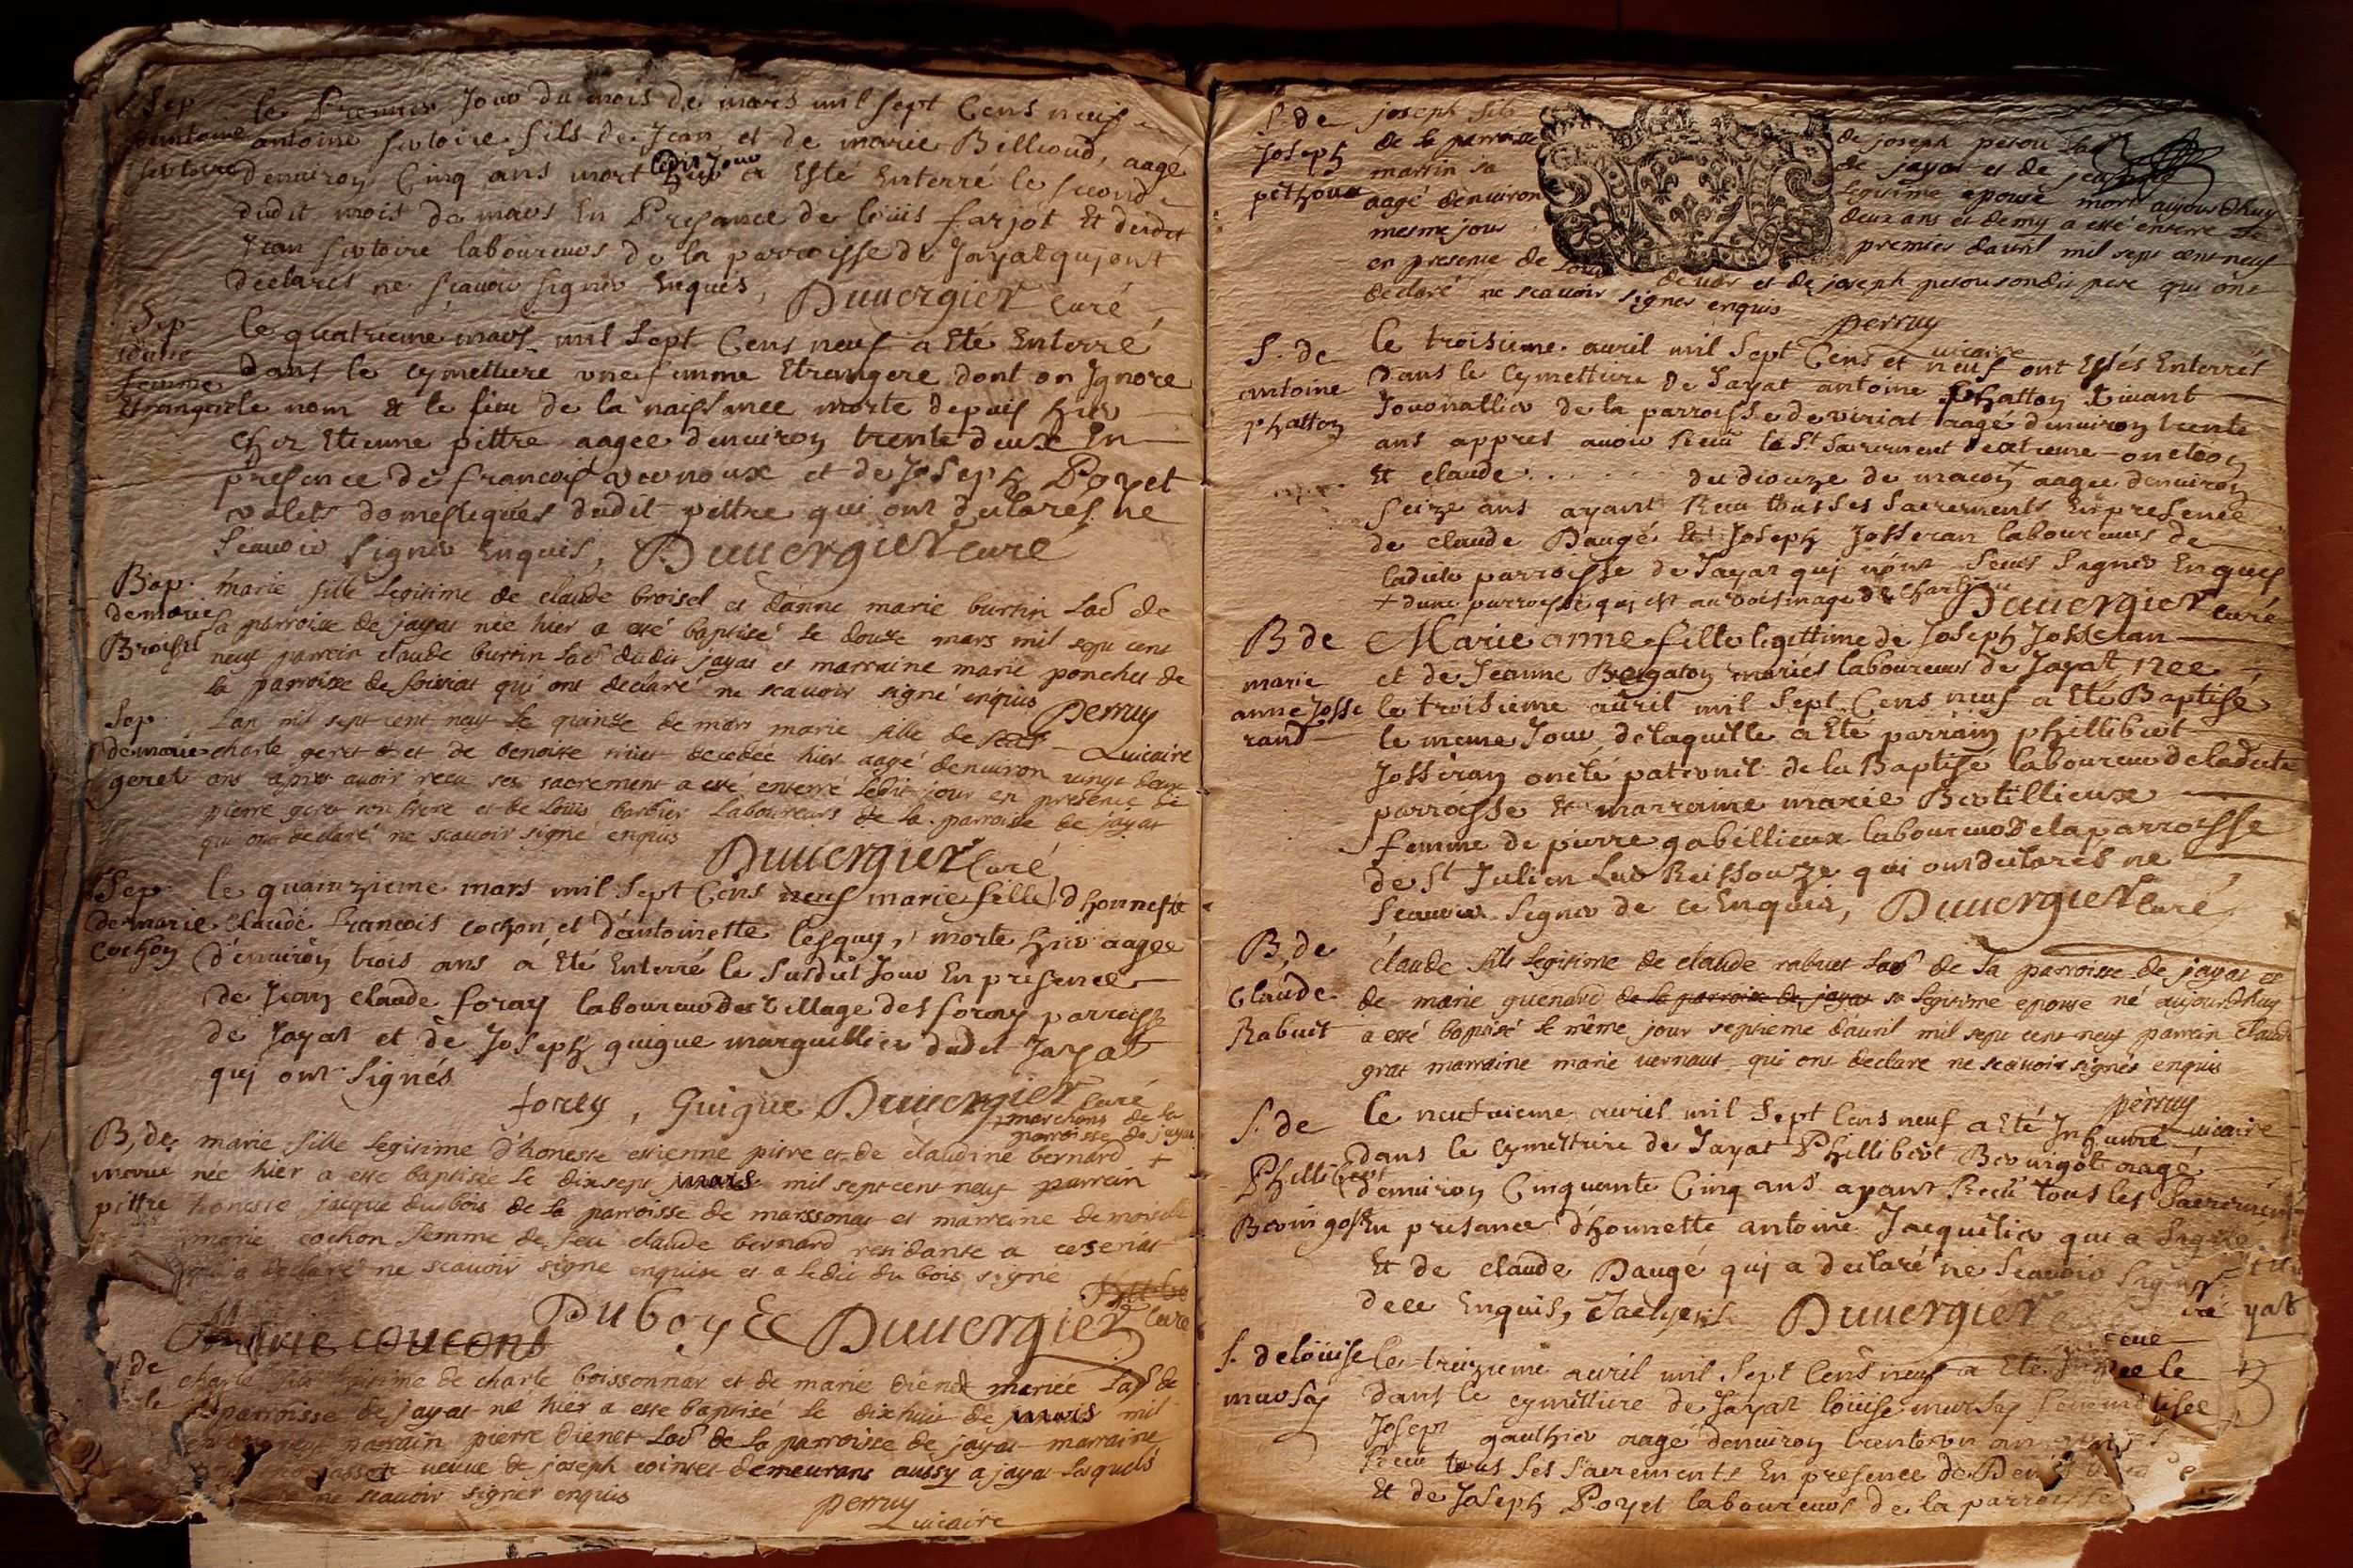 Sep le Premier Jour du mois de mars mil sept Cens neuf
antoine antoine sirtoire fils de Jean et de marie Billioud, aagé
denuiron Cinq ans mort ledit Jour a Esté Enterré le second
dudit mois de mars En Presance de loüis farjot Et dudit
Jean sirtoire laboureurs de la parroisse de Jayat qui ont
declares ne sçauoir signer Enquis, Duuergier curé
Sep le quatrieme mars mil sept Cens neuf a Eté Enterré
dune dans le cymettiere une femme Etrangere dont on Ignore
femme
Etrangere le nom & le lieu de la naissance morte depuis hier
chez Etienne pittre aagee denuiron trente deux En
presence de francois vernoux et de Joseph Poyet
valets domestiques dudit pittre qui ont declares ne
scauoir signer Enquis, Duuergier curé
Bap. marie fille legitime de claude broisel et danne marie burtin Lab de
de marie la parroisse de jayat née hier a esté baptisé le douze mars mil sept cent
Broissel neuf parrein claude burtin Lab dudit jayat et marraine marie ponchet de
la parroisse de foissiat qui ont declaré ne scauoir signé enquis perruy
uicaire
Sep Lan mil sept cent neuf le quinze de mars marie fille de feu
de marie charle geret et de benoite decedée hier aagé denuiron vingt deux
geret ans apres auoir recu ses sacrement a esté enterré ledit jour en presence de
pierre geret son frere et de Loüis barbier Laboureurs de la parroisse de jayat
qui ont declaré ne scauoir signé enquis
Duuergier Curé
Sep le quainzieme mars mil sept Cens neuf marie fille d'honneste
de marie claude francois cochon et d'antoinette lesquy, morte hier aagee
cochon d'enuiron trois ans a Eté Enterré le susdit Jour En presence
de Jean claude foray laboureur du village des foray parroisse
de Jayat et de Joseph guigue marguillier dudit Jayat
qui ont signés
forey, Guigue Duuergier curé
+ marchans de la
parroisse de jayat
B, de marie fille legitime d'honeste estienne pitre et de claudine bernard +
marie née hier a esté baptisée le dix sept mars mil sept cent neuf parrein
pittre honeste jacque dubois de la parroisse de marssonas et marreine demoiselle
marie cochon femme de feu claude bernard residante a ceseriat
qui a declaré ne scauoir signé enquise et a ledit du bois signé
Duboy & Duuergier curé
de charle fils legitime de charle boissonnar et de marie dienet mariée Lab de
la parroisse de jayat né hier a esté baptisé le dixhuit de mars mil
parrain pierre dienet Lab de la parroisse de jayat marraine
ueuue de joseph cointet demeurans aussy a jayat lesquels
ne scauoir signer enquis
perruy
uicaire
S de joseph fils de joseph petou Lab
Joseph de la parroisse de jayat et de
pethoux martin sa legitime epouse mort aujourdhuy
aagé denuiron deux ans et demy a esté enterré le
mesme jour premier dauril mil sept cent neuf
en presence de et de joseph petou sondit pere qui ont
declaré ne scauoir signer enquis
perruy
uicaire
S. de le troisieme auril mil sept Cens et neuf ont Estés Enterrés
antoine dans le cymettiere de Jayat antoine phatton viuant
phatton Journallier de la parroisse de viriat aagé denuiron trente
ans appres auoir Receu le St Sacrement dextreme onction
Et claude . . . . . du dioceze de macon + aagee denuiron
seize ans ayant Receu tous ses sacrements En presence
de claude Daugé Et Joseph Josseran laboureurs de
ladite parroisse de Jayat qui n'ont sceus signer Enquis
+ dune parroisse qui est au voisinage de Charlieu Duuergier curé
B de Marie anne fille legittime de Joseph Josseran
marie et de Jeanne Bergaton mariés laboureurs de Jayat, nee
anne Josse le troisieme auril mil sept Cens neuf a Eté Baptisé
rand le meme Jour de laquelle a Eté parrain phillibert
Josseran oncle paternel de la Baptisé laboureur de ladite
parroisse & marraine marie Bertillieux
femme de pierre gabillieux laboureur de la parroisse
de St Julien sur Reissouze qui ont declares ne
scauoir signer de ce Enquis, Duuergier Curé
B, de claude fils legitime de claude rabuet Lab de la parroisse de jayat et
Claude de marie guenard de la parroisse de jayat sa legitime epouse né aujourdhuy
Rabuet a esté baptisé le même jour septieme dauril mil sept cent neuf parrein claude
grat marraine marie uernaut qui ont declare ne scauoir signés enquis
perruy
uicaire
S. de le neufuieme auril mil sept Cens neuf a Eté Inhumé
Phillibert dans le cymettiere de Jayat Phillibert Bernigot aagé
Bernigot denuiron Cinquante Cinq ans ayant Receu tous les sacrements
En presance d'honnette antoine Jacquetier qui a signé
Et de claude Daugé qui a declaré ne scauoir signer
dece Enquis, Duuergier
S. de loüise le treizieme auril mil sept Cens neuf a Eté
mursay dans le cymettiere de Jayat loüise mursay femme
Joseph gauthier aagé denuiron trente un an
Receu tous ses sacrements En presence de
Et de Joseph Poyet laboureurs de la parroisse